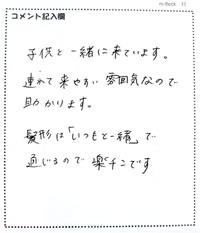 m-flock 11
コメント記入欄
子供と一緒に来ています。
連れて来やすい雰囲気なので
助かります。
髪形は「いつもと一緒」で
通じるので楽チンです